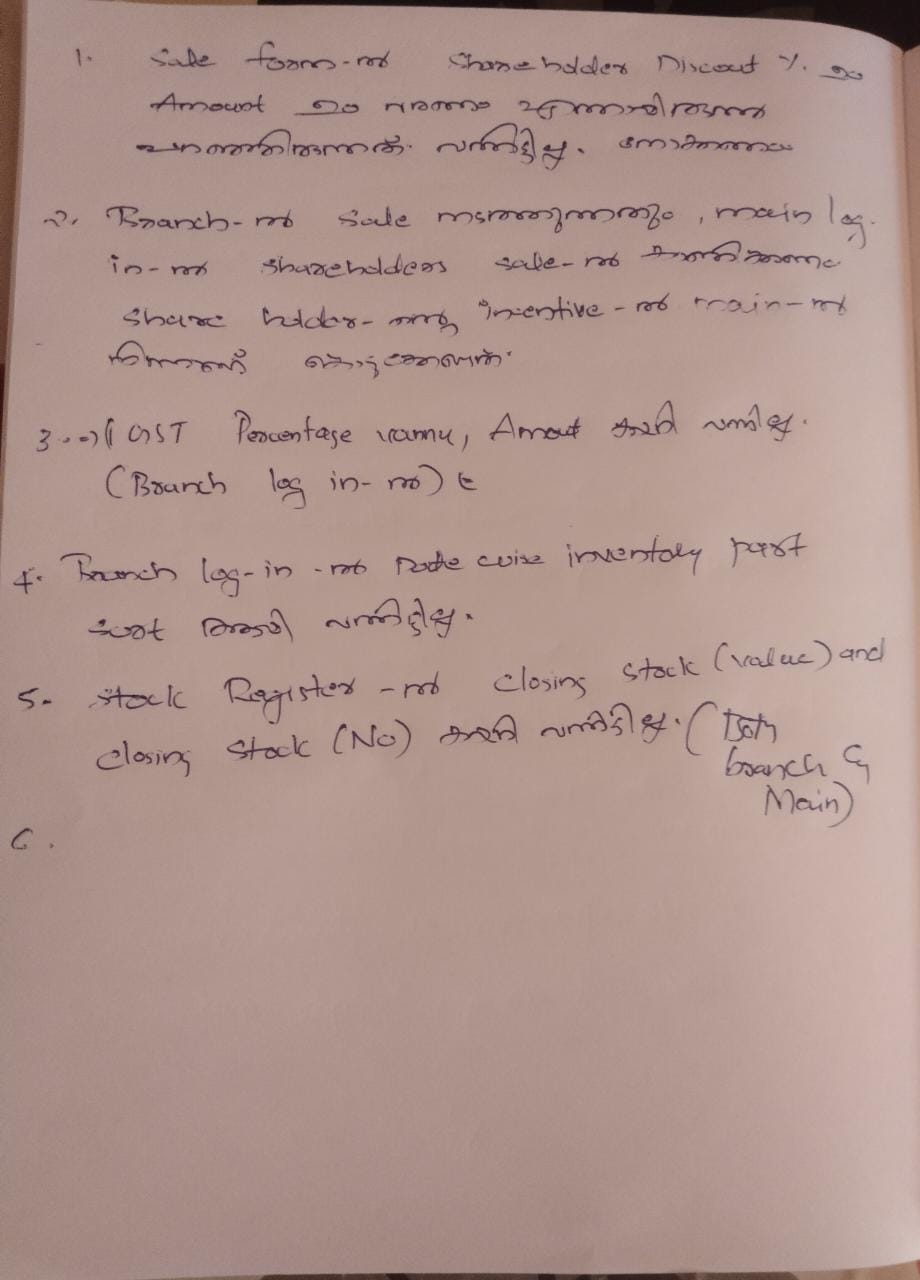 1. Sale form-ൽ Shareholder Discout %. ഉം
Amount ഉം വരണം എന്നായിരുന്നു
പറഞ്ഞിരുന്നത്. വന്നിട്ടില്ല. നോക്കണം
2. Branch-ൽ Sale നടത്തുന്നതും, main log
in-ൽ shareholders sale-ൽ കാണിക്കണം
Share holder-ന്റെ incentive-ൽ main-ൽ
നിന്നാണ് കൊടുക്കേണ്ടത്.
3. GST Percentage വന്നു, Amout കയറി വന്നില്ല.
(Branch log in-ൽ)
4. Branch log-in-ൽ Rate wise inventory part
കയറി വന്നിട്ടില്ല.
5. Stock Register-ൽ closing stock (value) and
closing Stock (No) കയറി വന്നിട്ടില്ല. (Both
branch &
Main)
6.